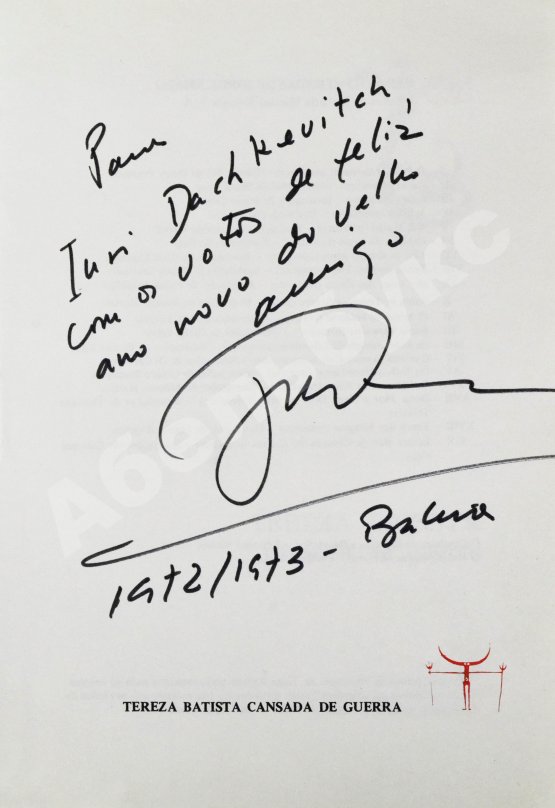 Para
Iuri Dachkevitch
com os votos de feliz
ano novo do velho
amigo
1972/1973 - Bahia
TEREZA BATISTA CANSADA DE GUERRA
Абельбукс